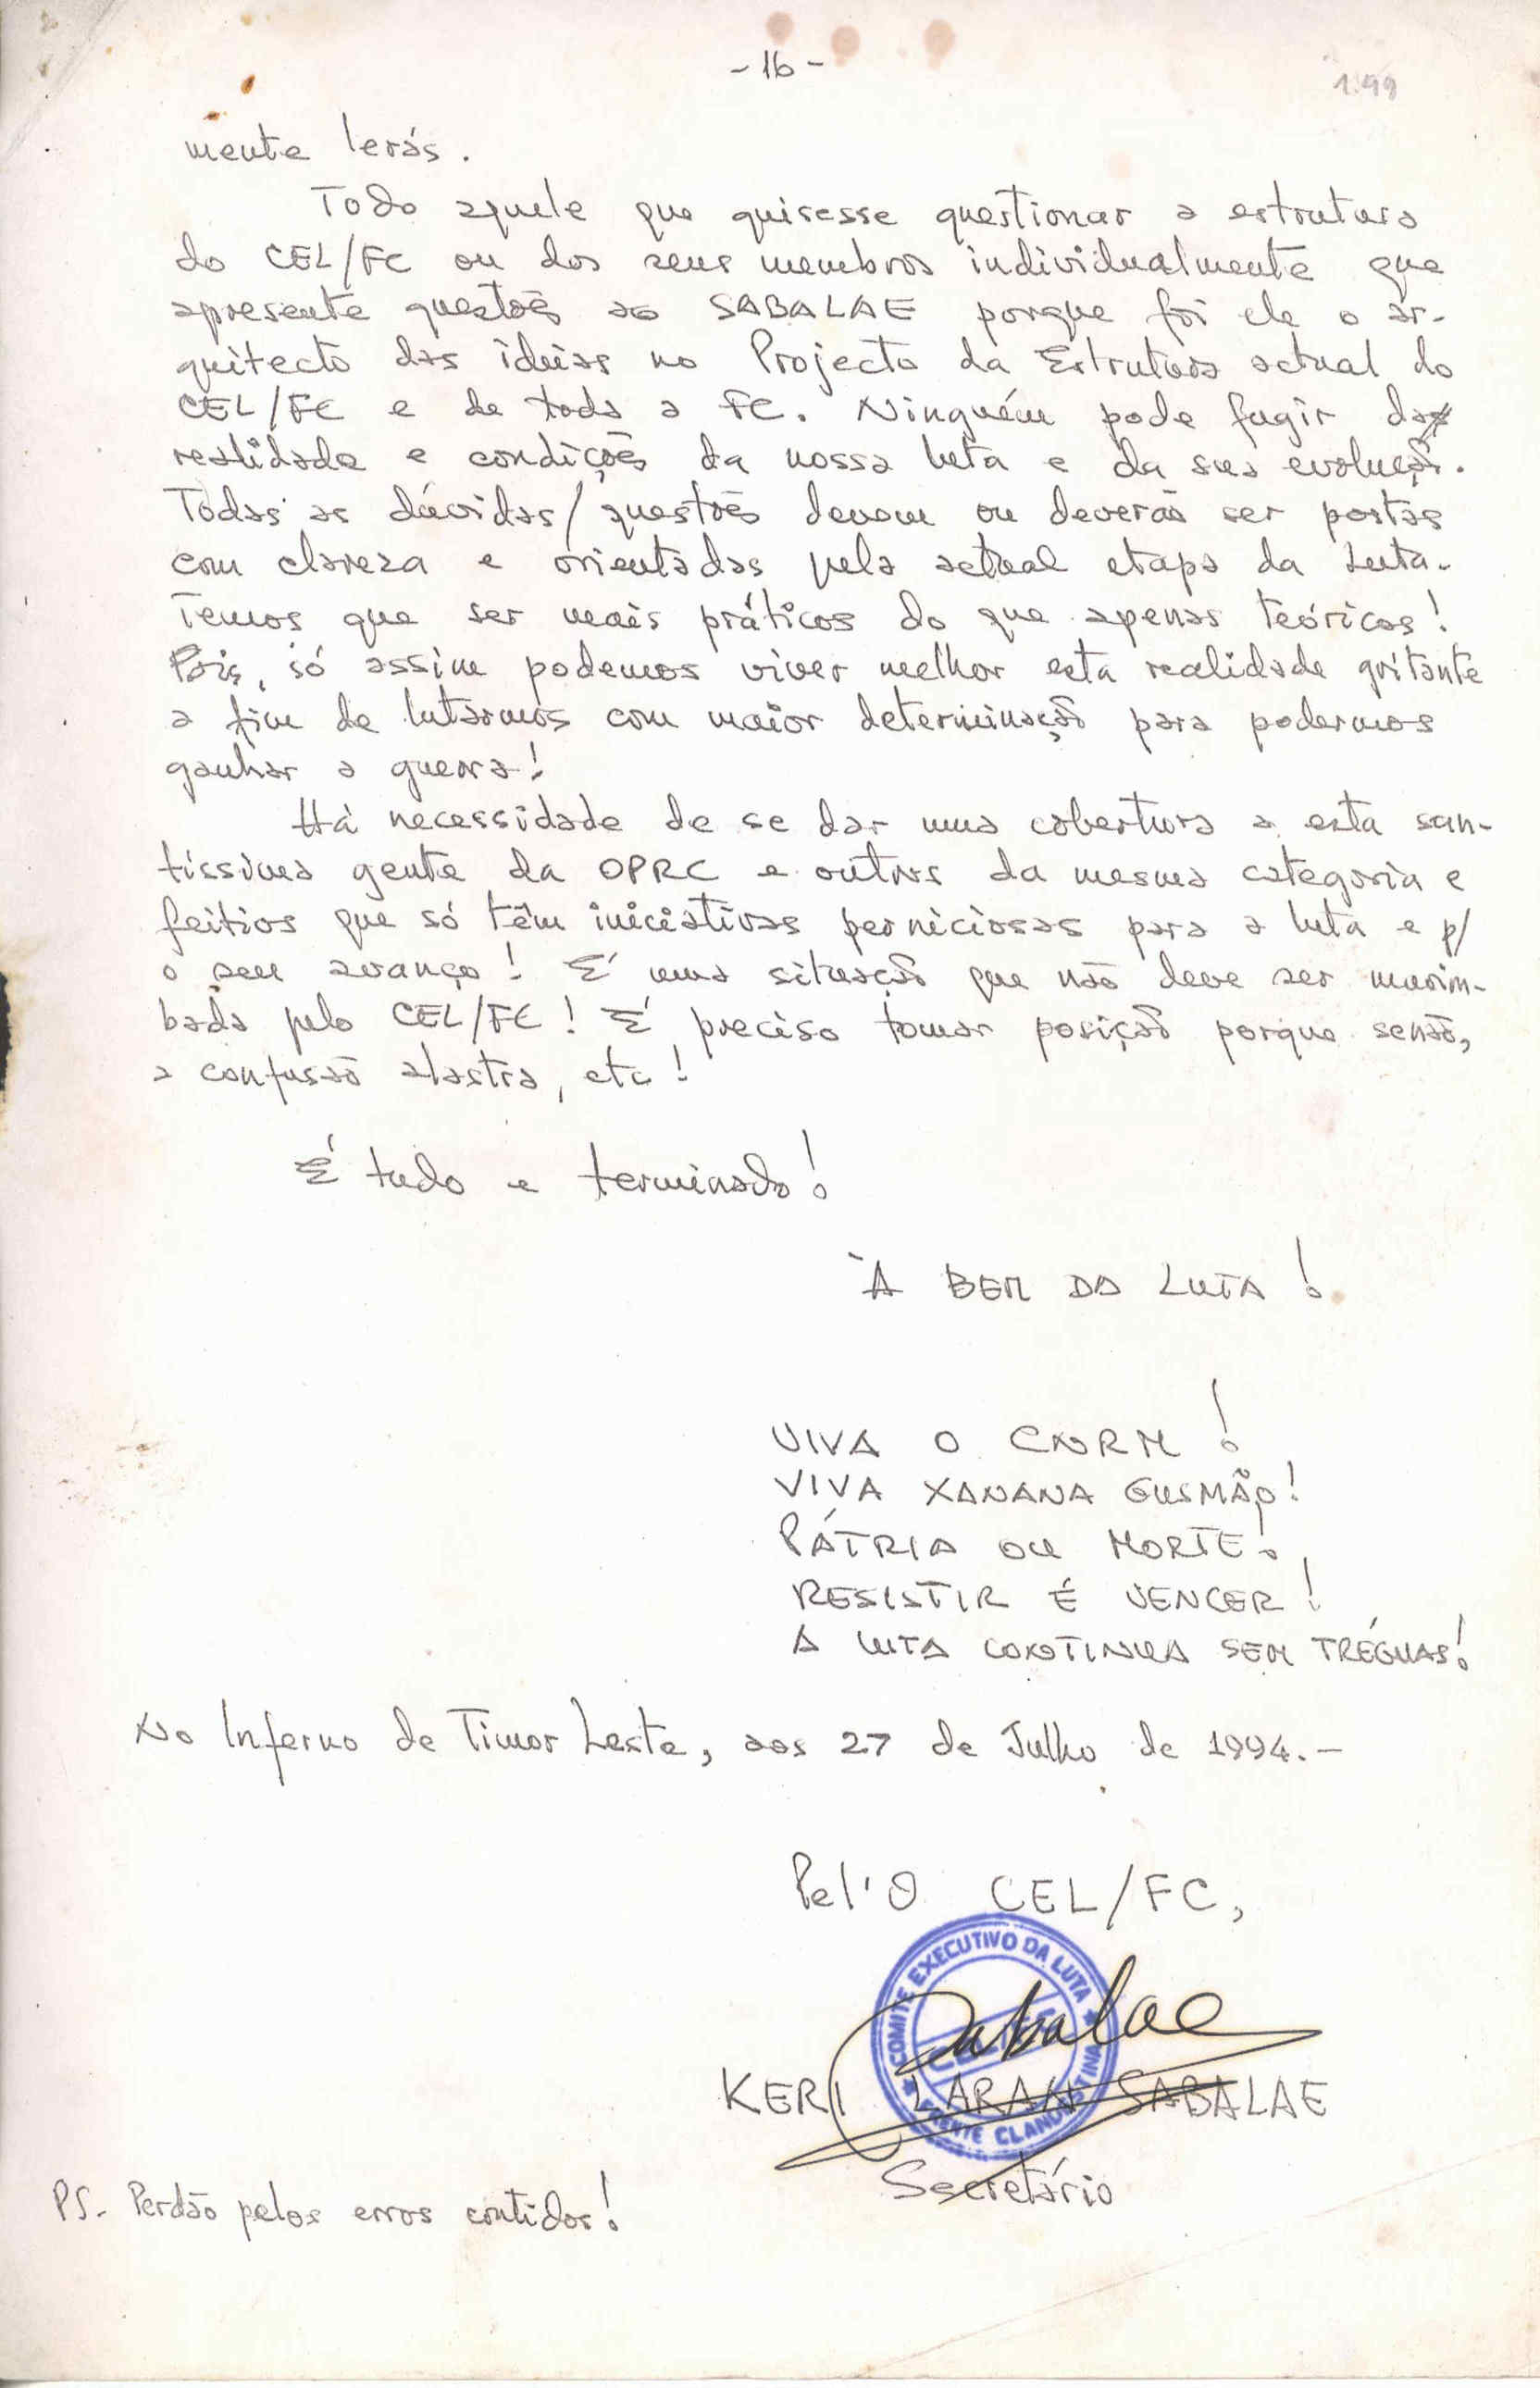 - 16 -
1.99
mente lerás.
Todo aquele que quisesse questionar a estrutura
do CEL/FC ou dos seus membros individualmente que
apresente questões ao SABALAE porque foi ele o ar-
quitecto das ideias no Projecto da Estrutura actual do
CEL/FC e de toda a FC. Ninguém pode fugir da
realidade e condições da nossa luta e da sua evolução.
Todas as dúvidas/questões devem ou deverão ser postas
com clareza e orientadas pela actual etapa da Luta.
Temos que ser mais práticos do que apenas teóricos!
Pois, só assim podemos viver melhor esta realidade gritante
a fim de lutarmos com maior determinação para podermos
ganhar a guerra!
Há necessidade de se dar uma cobertura a esta san-
tíssima gente da OPRC e outros da mesma categoria e
feitios que só têm iniciativas perniciosas para a luta e p/
o seu avanço! É uma situação que não deve ser marim-
bada pelo CEL/FC! É preciso tomar posição porque senão,
a confusão alastra, etc!
É tudo e terminado!
À BEM DA LUTA!
VIVA O CNRM!
VIVA XANANA GUSMÃO!
PÁTRIA OU MORTE!
RESISTIR É VENCER!
A LUTA CONTINUA SEM TRÉGUAS!
No Inferno de Timor Leste, aos 27 de Julho de 1994.-
Pel'O CEL/FC,
COMITE EXECUTIVO DA LUTA
CEL/FC
FRENTE CLANDESTINA
Sabalae
KERI LARAN SABALAE
Secretário
PS. Perdão pelos erros contidos!